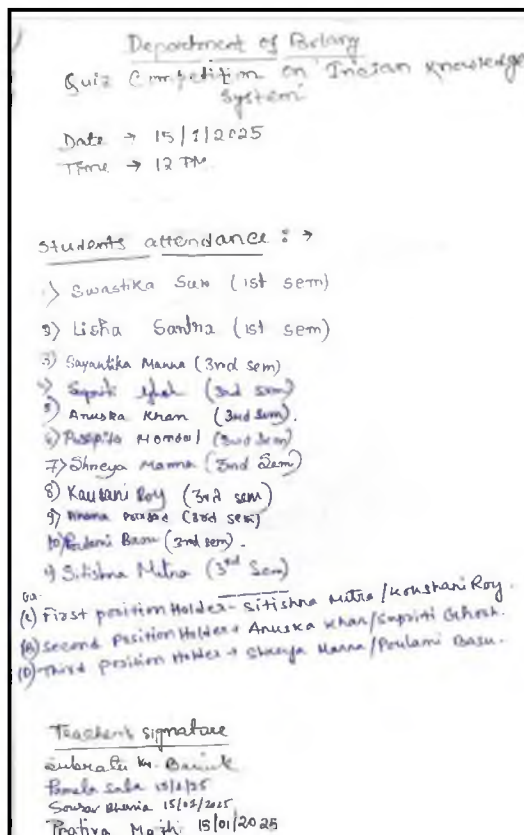 Department of Botany
Quiz Competition on Indian Knowledge
System
Date → 15/1/2025
Time → 12 PM
Students attendance : →
1) Swastika Sun (1st sem)
2) Lisha Santra (1st sem)
3) Sayantika Manna (3nd sem)
(3rd sem)
5) Anuska Khan (3rd Sem).
Mondal (3rd sem)
7) Shreya Manna (3nd Sem)
8) Kausani Roy (3rd sem)
9) (3rd sem)
10) Poulami Basu (3nd sem).
11) Sitishna Mitra (3rd Sem)
First position Holder - Sitishna Mitra / Koushani Roy.
(B) Second Position Holder → Anuska Khan / Supriti Ghosh.
Third position Holder → Shreya Manna / Poulami Basu.
Teacher's signature
Subrata Kr. Barik
Pamela Saha 15/1/25
Sourav Bhunia 15/01/2025
Pratiya 15/01/2025